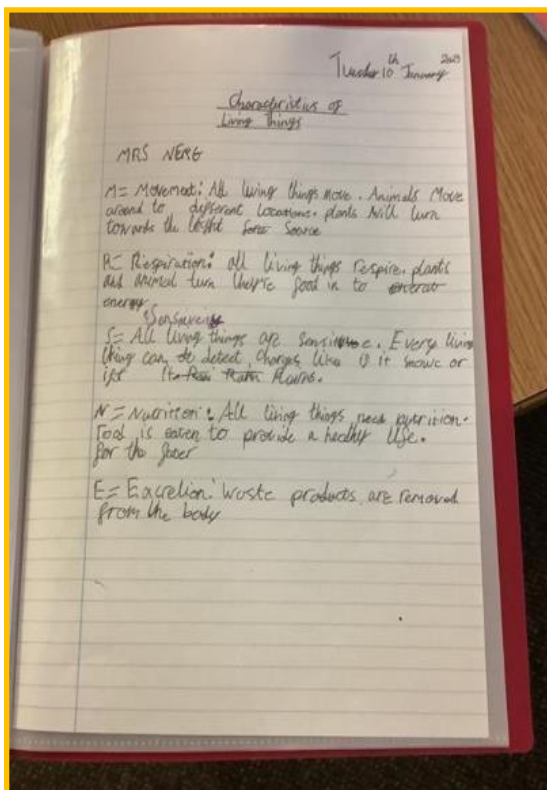 Tuesday 10th January 2023
Characteristics of
Living Things
MRS NERG
M= Movement: All living things move. Animals Move
around to different locations. plants will turn
towards the light source
R= Respiration: all living things respire. plants
and animal turn they're food in to
energy
S= All living things are sensitive. Every living
thing can detect changes like is it snows or
if it Rains.
N= Nutrition: All living things need nutrition.
Food is eaten to provide a healthy life.
for the
E= Excretion: Waste products are removed
from the body